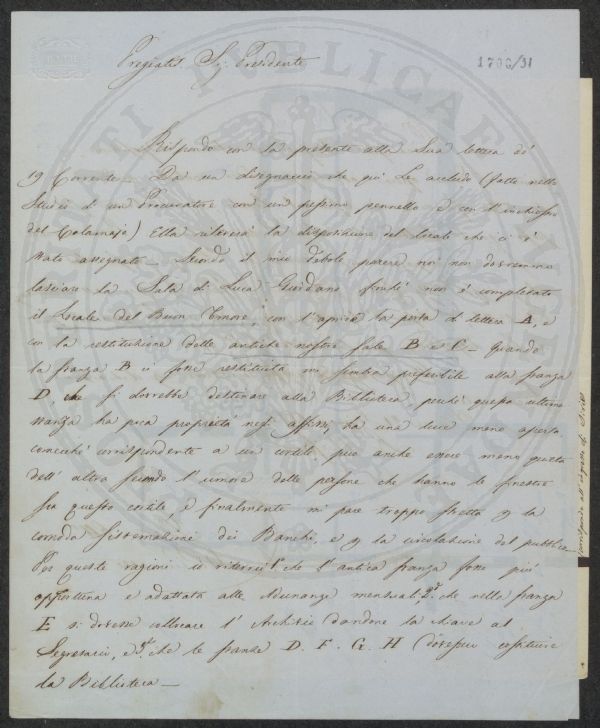 Pregiatis Sig. Presidente
1706/31
Rispondo con la presente alla Sua lettera de'
19 Corrente. Da un disegnaccio che qui Le accludo (fatto nello
Studio di un Procuratore con un pessimo pennello e con l'inchiostro
del Calamajo) Ella rileverà la disposizione del locale che ci è
stato assegnato. Secondo il mio debole parere noi non dovremmo
lasciare la Sala di Luca Giordano finchè non è completato
il Locale del Buon Umore, con l'aprire la porta di lettera A, e
con la restituzione delle antiche nostre sale B e C - quando
la stanza B ci fosse restituita mi sembra preferibile alla stanza
D, che si dovrebbe destinare alla Biblioteca, perchè questa ultima
stanza ha poca proprietà negli affissi, ha una luce meno aperta
comecchè corrispondente a un cortile, può anche essere meno quieta
dell'altra secondo l'umore delle persone che hanno le finestre
su questo cortile, e finalmente mi pare troppo stretta per la
comoda sistemazione dei Banchi, e per la circolazione del pubblico
Per queste ragioni io riterrei 1° che l'antica stanza fosse più
opportuna e adattata alle Adunanze mensuali, 2° che nella stanza
E si dovesse collocare l'Archivio dandone la chiave al
Segretario, e 3° che le stanze D. F. G. H dovesser costituire
la Biblioteca -
corrisponde all'ingresso di